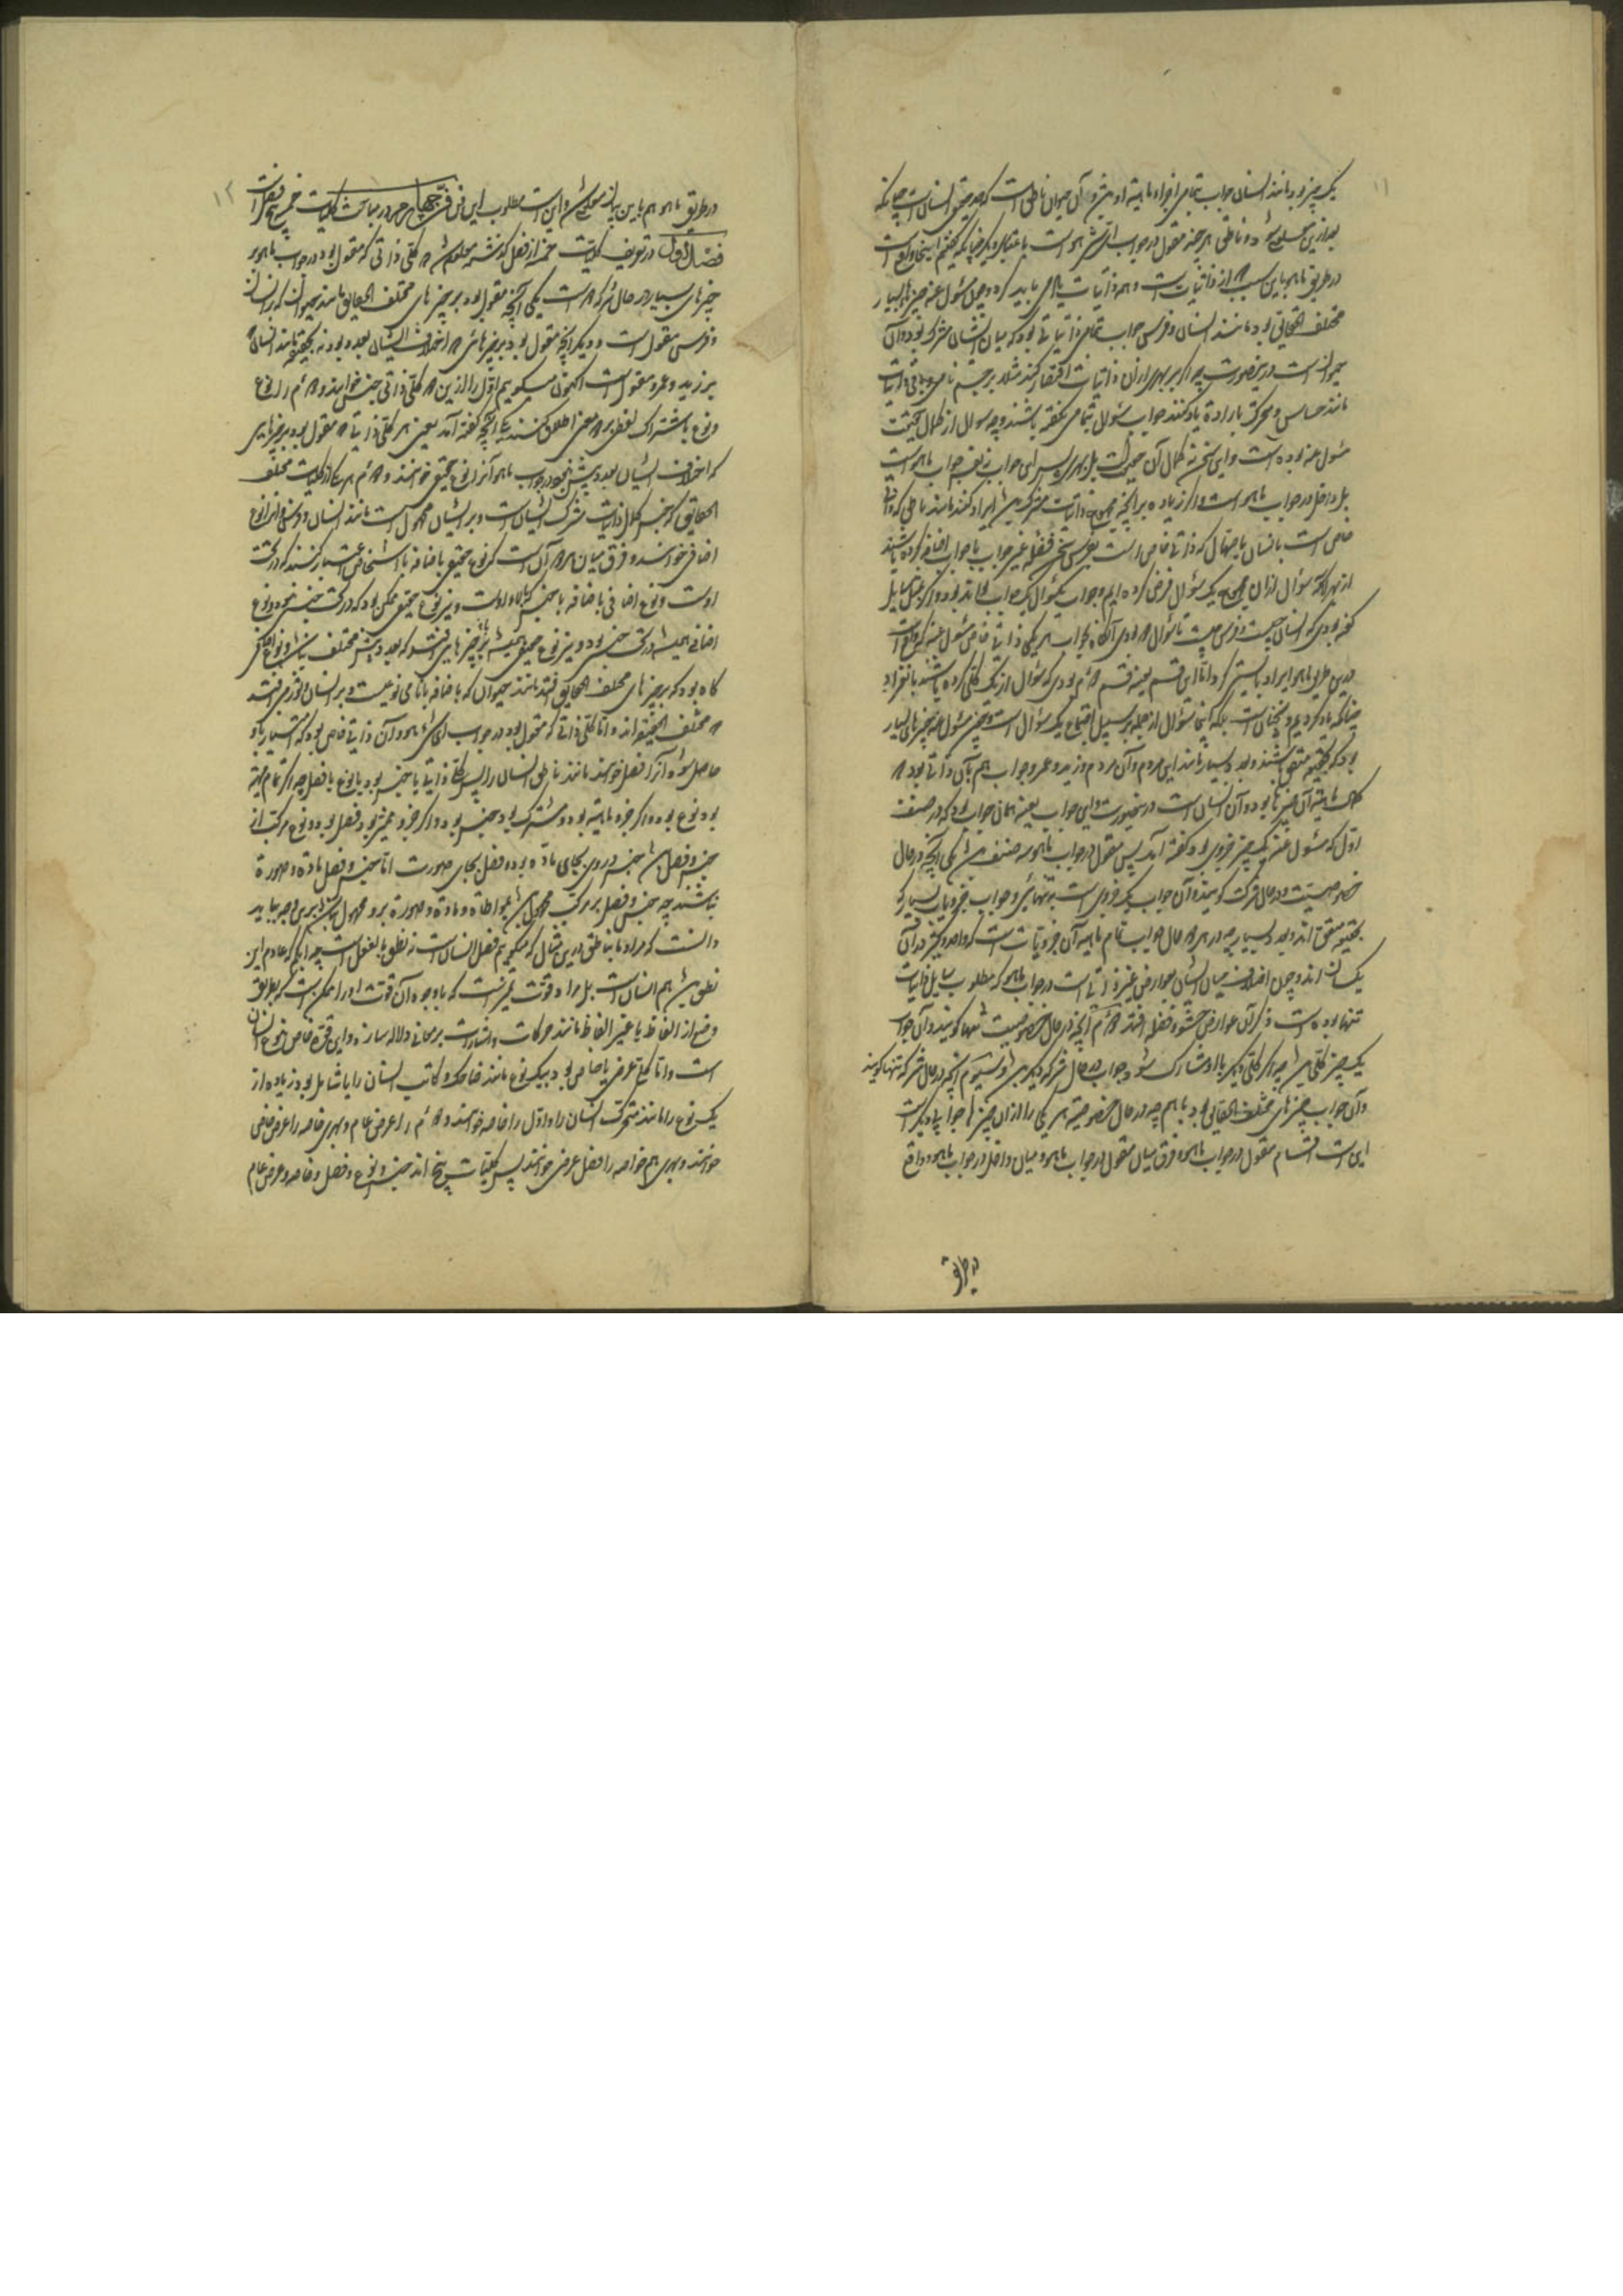 یک چیز بود مانند انسان جواب تمامی اجزاء ماهیة او بود و آن حیوان ناطق است که حد حقیقی انسان است چنانکه
بعد ازین معلوم شود و ناطق هر چند مقول در جواب ای شیء هو است باعتبار دیگر چنانکه گفتیم اینجا واقع است
در طریق ما هو باین سبب که از ذاتیات است و همه ذاتیات یاد می باید کرد و چون مسئول عنه چیزهای بسیار
مختلف الحقایق بود مانند انسان و فرس جواب تمامی ذاتیاتی بود که میان ایشان مشترک بود و آن
حیوان است درین صورت چه اگر بر بهری ازان ذاتیات اقتصار کنند مثلا بر جسم نامی و باقی ذاتیات
مانند حساس و متحرک باراده یاد نکنند جواب سؤال تمامی نگفته باشند چه سؤال از کمال حقیقت
مسئول عنه بوده است و این سخن نه کمال آن حقیقت است بل بهری
بل داخل در جواب ما هو است و اگر زیاده بر آنچه مجموع ذاتیات مشترک بود ایراد کنند مانند ناطق که ذاتی
خاص است بانسان یا صهال که ذاتی خاص است بفرس سخن فضله غیر جواب با جواب اضافه کرده باشند
از بهر آنکه سؤال ازان مجموع یک سؤال فرض کرده ایم و جواب یک سؤال یک جواب تواند بود و اگر سایل
گفته بودی که انسان چیست و فرس چیست تا سؤال دو بودی آنگاه بجواب هر یکی ذاتی خاص مسئول عنه که واقع است
در طریق ما هو ایراد بایستی کرد اما این قسم بعینه قسم دوم بودی که سؤال از یک کلی کرده باشند بانفراد
چنانکه یاد کردیم و نه چنان است بلکه اینجا سؤال از جمله بر سبیل اجتماع یک سؤال است و چون مسئول عنه چیزهای بسیار
بود که بحقیقة متفق باشند و بعدد بسیار مانند این مردم و آن مردم و زید و عمرو جواب هم بآن ذاتی بود که
کمال ماهیة آن چیزها بود و آن انسان است درین صورت و این جواب بعینه همان جواب بود که در صنف
اول که مسئول عنه یک چیز جزوی بود گفته آمد پس مقول در جواب ما هو سه صنف بود یکی آنچه در حال
خصوصیت و در حال شرکت گویند و آن جواب یک جزوی است بتنهایی و جواب جزویات بسیار که
بحقیقة متفق اند و بعدد بسیار چه در هر دو حال جواب تمام ماهیة آن جزویات است که واحد و کثیر در آن
یکسان اند و چون اختلاف میان ایشان بعوارض غیر ذاتی است و در جواب ما هو که مطلوب سایل ذاتیات
تنها بوده است ذکر آن عوارض حشو و فضله افتد دوم آنچه در حال خصوصیت تنها گویند و آن جواب
یک چیز کلی بود چه اگر کلی دیگر با او مشارک شود جواب در حال شرکة دیگر بود و سیوم آنچه در حال شرکة تنها گویند
و آن جواب چیزهای مختلف الحقایق بود با هم چه در حال خصوصیة هر یکی را ازان چیزها جوابی دیگر است
این است اقسام مقول در جواب ما هو و فرق میان مقول در جواب ما هو و میان داخل در جواب ما هو و واقع
در طریق
در طریق ما هو هم باین بیانها معلوم شد و این است مطلوب این فن فن چهارم در مباحث کلیات خمس
فصل اول در تعریف کلیات خمسه از فصل گذشته معلوم شد که کلی ذاتی که مقول بود در جواب ما هو
چیزهای بسیار در حال شرکة دو است یکی آنچه مقول بود بر چیزهای مختلف الحقایق مانند حیوان که بر انسان
و فرس مقول است و دیگر آنچه مقول بود بر چیزهائی که اختلاف ایشان بعدد بود نه بحقیقة مانند انسان که
بر زید و عمرو مقول است اکنون میگوییم اول را ازین دو کلی ذاتی جنس خوانند و دوم را نوع
و نوع باشتراک لفظ بر دو معنی اطلاق کنند یکی آنچه گفته آمد یعنی هر کلی ذاتی که مقول بود بر چیزهایی
که اختلاف ایشان بعدد بیش نبود در جواب ما هو آنرا نوع حقیقی خوانند و دوم هر یکی از کلیات مختلف
الحقایق که جنس کمال ذاتیات مشترک ایشان است و بر ایشان محمول است مانند انسان و فرس و آنرا نوع
اضافی خوانند و فرق میان هر دو آن است که نوع حقیقی باضافه با اشخاص اعتبار کنند که در تحت
اوست و نوع اضافی باضافه با جنس که بالاء اوست و نیز نوع حقیقی ممکن بود که در تحت جنس نبود و نوع
اضافی همیشه در تحت جنس بود و نیز نوع حقیقی همیشه بر چیزهایی افتد که بعدد بیش مختلف نباشند و نوع اضافی
گاه بود که بر چیزهای مختلف الحقایق افتد مانند حیوان که باضافه با نامی نوعیست و بر انسان و فرس افتد
که مختلف الحقیقة اند و اما کلی ذاتی که مقول بود در جواب ای شیء هو و آن ذاتی خاص بود که امتیاز باو
حاصل شود آنرا فصل خوانند مانند ناطق انسان را پس کلی ذاتی یا جنس بود یا نوع یا فصل چه اگر تمام ماهیة
بود نوع بود و اگر جزو ماهیة بود و مشترک بود جنس بود و اگر جزو ممیز بود فصل بود و نوع مرکب از
جنس و فصل بود جنس در وی بجای ماده بود و فصل بجای صورت اما جنس و فصل مادة و صورة
نباشند چه جنس و فصل بر مرکب محمول بود بمواطاة و مادة و صورة برو محمول نباشد برین وجه و بباید
دانست که مراد ما بناطق درین مثال که میگوییم فصل انسان است نه نطق بالفعل است چه ابکم که عادم این
نطق بود هم انسان است بل مراد قوت تمیز است که با وجود آن قوت او را ممکن است که بطریق
وضع از الفاظ یا غیر الفاظ مانند حرکات و اشارات بر معانی دلالة سازد و این قوة خاص نوع انسان
است و اما کلی عرضی یا خاص بود بیک نوع مانند ضاحک و کاتب انسان را یا شامل بود زیاده از
یک نوع را مانند متحرک انسان را و اول را خاصه خوانند و دوم را عرض عام و بهری خاصه را عرض خاص
خوانند و بهری هم خاصه را فصل عرضی خوانند پس کلیات پنج اند جنس و نوع و فصل و خاصه و عرض عام